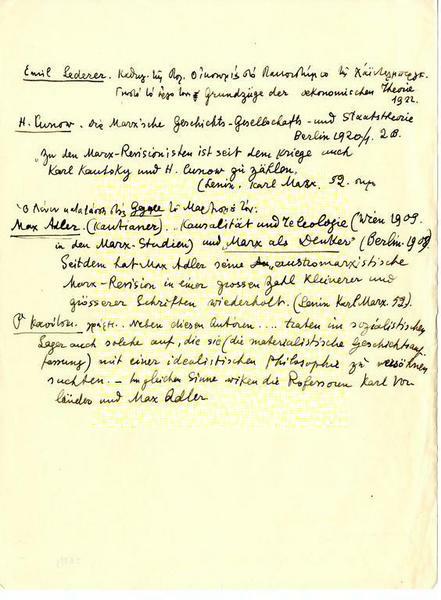 Emil Lederer. Καθηγ. της Πολ. Οικονομίας στο Πανεπιστήμιο της Χαϊντελμπεργκ.
Γνωστό το έργο του Grundzüge der oekonomischen Theorie
1922.
H. Cunow. Die Marxsche Geschichts-Gesellschafts- und Staatstheorie
Berlin 1920/1. 2 B.
„Zu den Marx-Revisionisten ist seit dem Kriege auch
Karl Kautsky und H. Cunow zu zählen,
(Lenin, Karl Marx. 52.
Ο Λένιν κατατάσσει στους
Max Adler. (Kantianer)... Kausalität und Teleologie (Wien 1909.
in den Marx-Studien) und „Marx als Denker" (Berlin 1908).
Seitdem hat Max Adler seine austromarxistische
Marx-Revision in einer grossen Zahl kleinerer und
grösserer Schriften wiederholt. (Lenin Karl Marx. 52).
Neben diesen Autoren.... traten im sozialistischen
Lager auch solche auf, die sie (die materialistische Geschichtsauf-
fassung) mit einer idealistischen Philosophie zu versöhnen
suchten. – Im gleichen Sinne wirken die Professoren Karl Vor-
länder und Max Adler